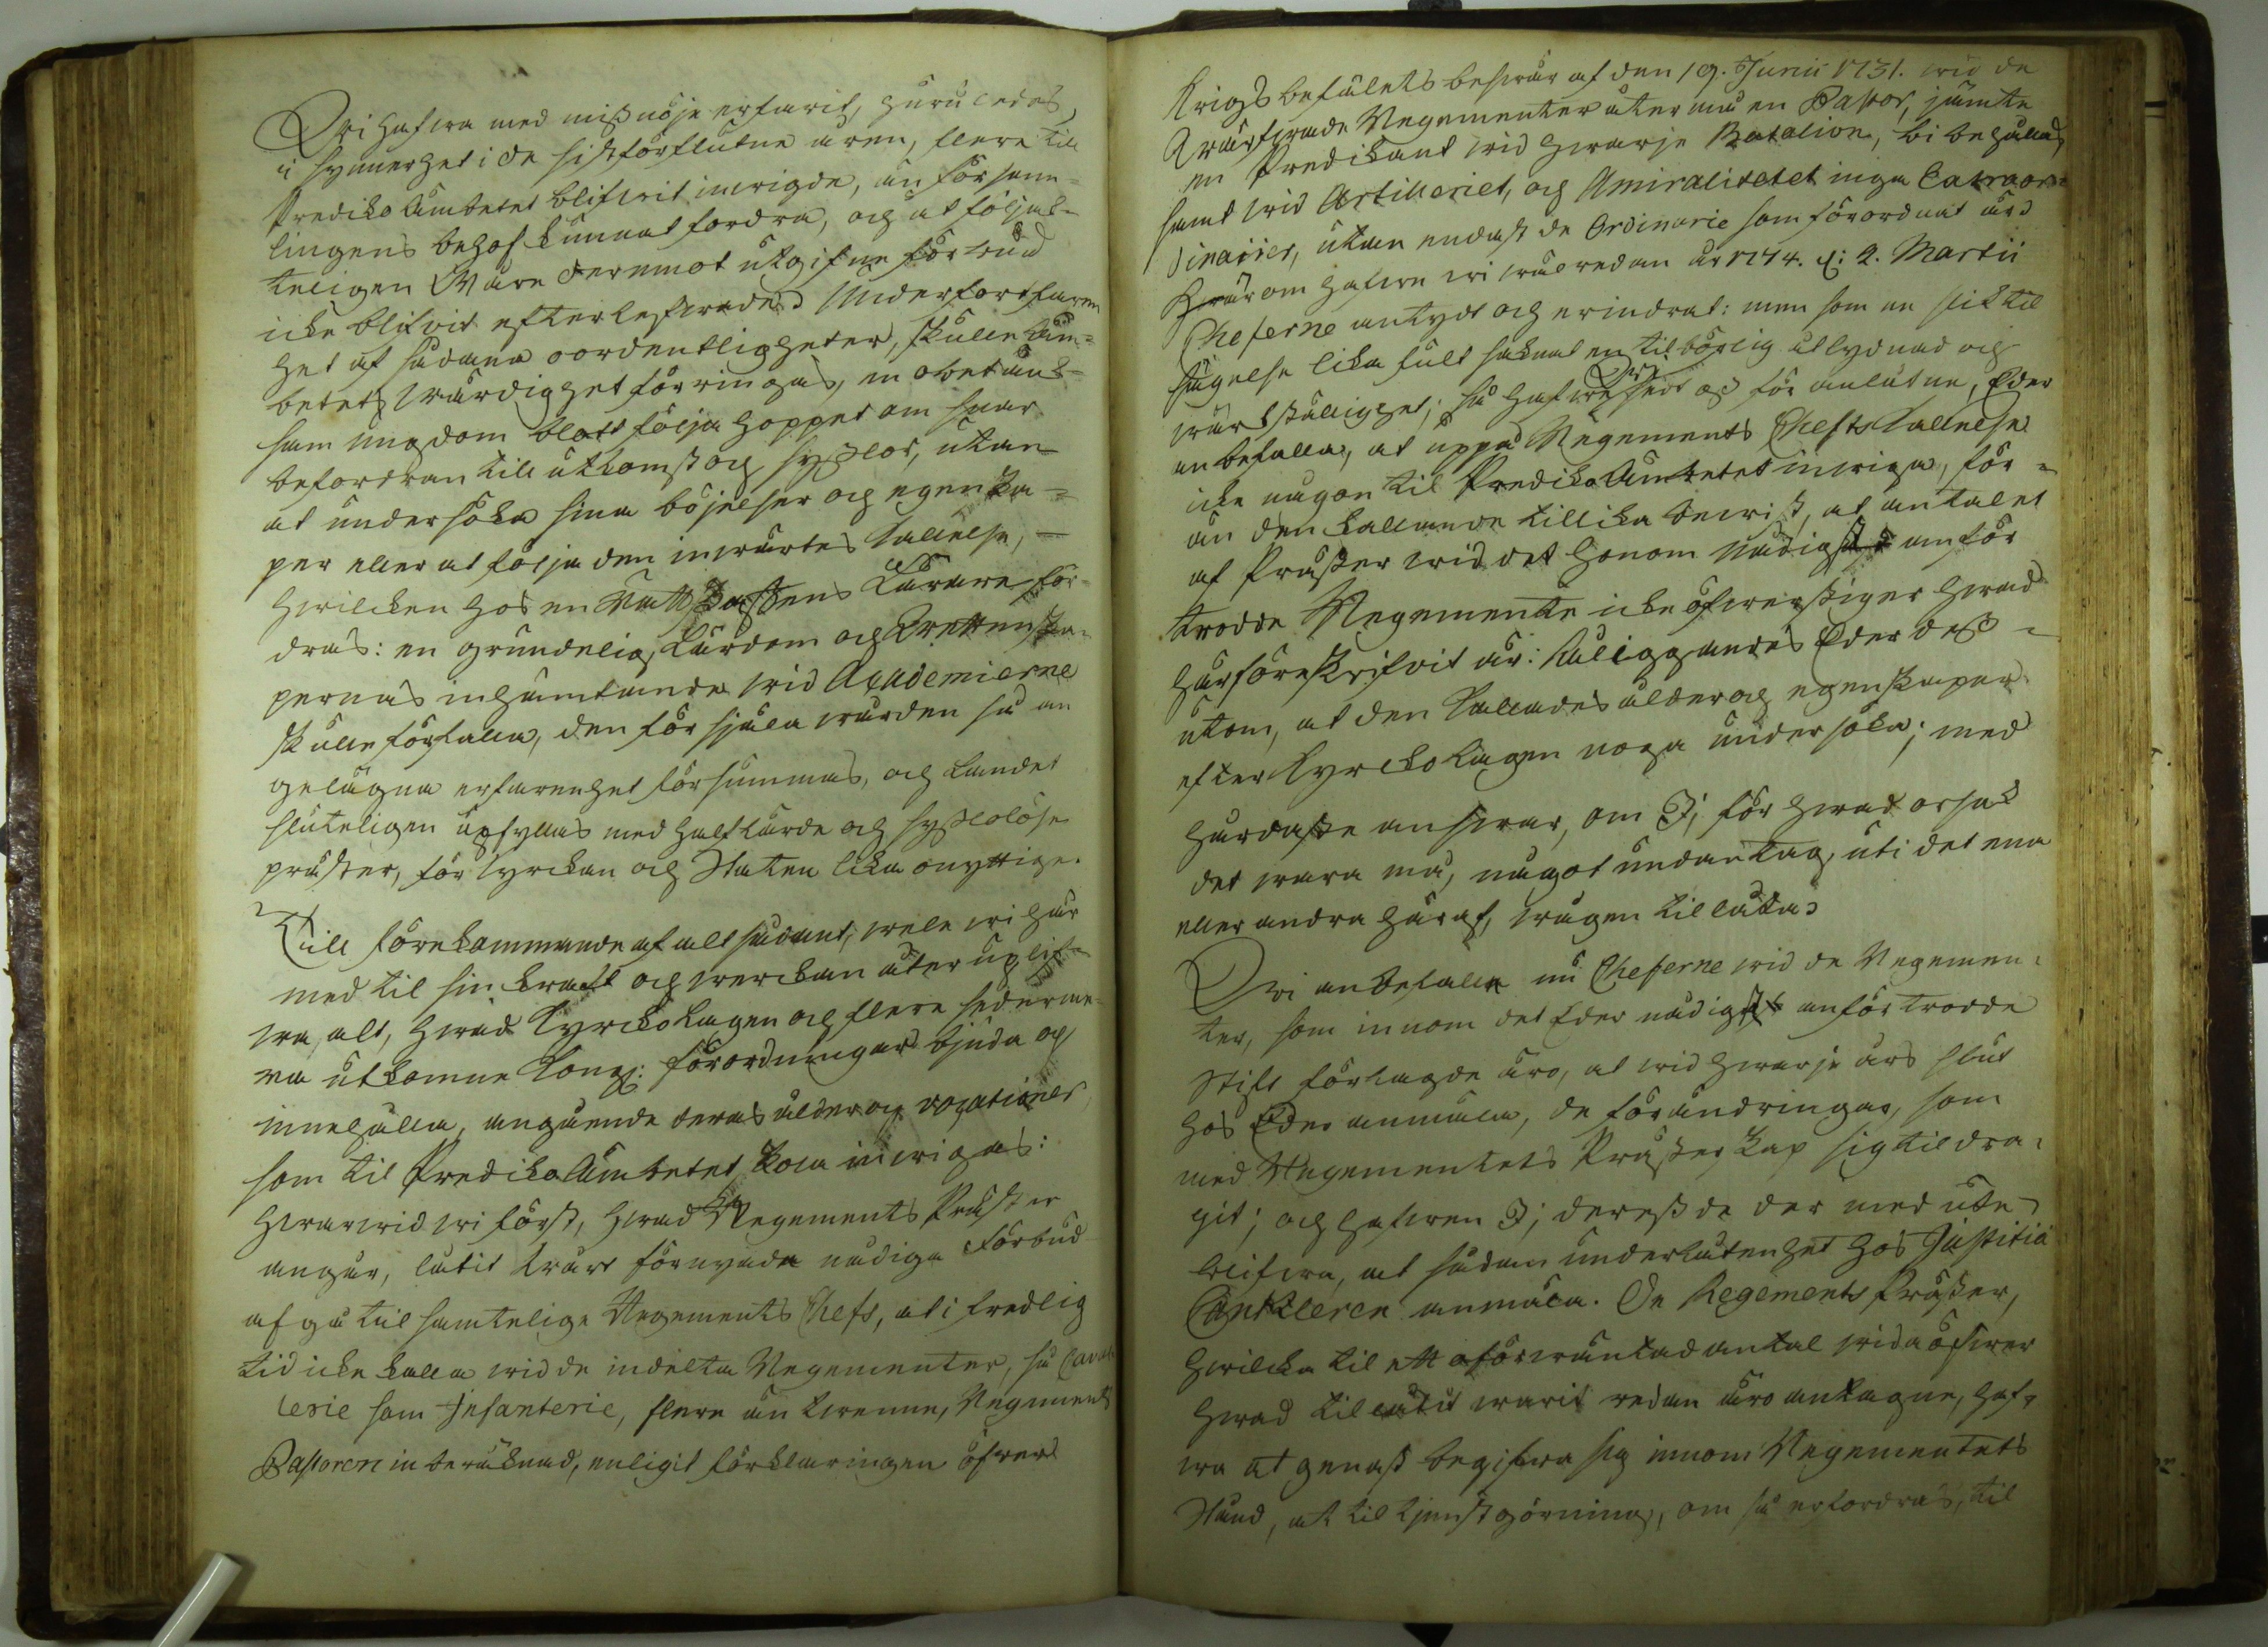 Wi hafwa med missnöje erfarit, huruledes,
i synnerhet i de sistförflutne åren, flere till
Predikoämbetet blifwit inwigde, än församb=
lingens behof kunnat fordra, och at följak=
teligen Wåre deremot utgifne förbud
icke blifvit efterlefwade. Wid fortfaren
het af sådana oordentligheter, skulle äm=
betets wärdighet förringas, en obetänk=
sam ungdom blott följa hoppet om snar
befordran till utkomst och sysslor, utan
at undersöka sina böjelser och egenska=
per eller at följa den inwärtes kallelse,
hwilcken hos en rättskaffens Lärare for=
dras: en grundelig Lärdom och Wettenska=
pernas inhämtande wid Academierne
skulle förfalla, den för själa wården så an
gelägna erfarenhet försummas, och Landet
sluteligen upfyllas med half lärde och sysslolöse
präster, för kyrckan och Staten lika onyttige.
Till förekommande af alt sådant, wele wi här
med til sin kraft och werckan åter uplif=
wa, alt, hwad Kyrcko Lagen och flere sederme=
ra utkomne Kongl: förordningar bjuda och
innehålla, angående deras ålder och vocationer,
som til Predikoämbetet kola inwigas:
hwarwid wi först, hwad Regements Präster
angår, låtit wårt förnyade nådiga förbud
afgå til samtelige Regements Chefs, at i fredlig
tid icke kalla wid de indelta Regementer, så Caval
lerie som Infanterie, flere än twenne, Regements
Pastoren inberäknad, enligit förklaringen öfwer
Krigsbefälets beswär af den 19. Junii 1731. wid de
Wärfwade Regementer åter må en Pastor, jämte
en Predikant wid hwarje Batalion, bibehållas,
samt wid Artilleriet, och Amiralitetet inga Extraor=
dinarier, utan endast de Ordinarie som förordnat äro
Hwarom hafwe wi wäl redan år 1774. d: 2. Martii
Cheferne antydt och erindrat: men som en slik til
sägelse lika fult saknat en tilbörlig åtlydnad och
wärckställighet; så hafwe wi sedt os för anlåtne, Eder
anbefalla, at uppå Regements Chefs Kallelse
icke någon til Predikoämbetet inwiga, för=
än den kallande tillika bewist, at antalet
af Präster wid det honom nådigst anför
trodde Regemente icke öfwerstiger hwad
härföreskrifvit är: Åliggandes Eder dess=
utom, at den kallades ålder och egenskaper
efter Kyrcko Lagen noga undersöka; med
hårdaste answar, om I, för hwad orsak
det wara må, något undantag, uti det ena
eller andra häraf, wågen tillåta.
Wi anbefalla nu Cheferne wid de Regemen=
ter, som innom det Eder nådigst anförtrodde
Stift förlagde äro, at wid hwarje års slut
hos Eder anmäla, de förändringar, som
med Regementets Prästerskap sig tildra=
git; och hafwen I, derest de der med ute
blifwa, at sådan underlåtenhet hos Justitiæ
Cantzleren anmäla. De Regements Präster,
hwilcka til ett oförwäntad antal wida öfwer
hwad tillåtit warit redan äro antagne, haf=
wa at genast begifwa sig innom Regementets
Stånd, at til tjenstgörning, om så erfordras, til